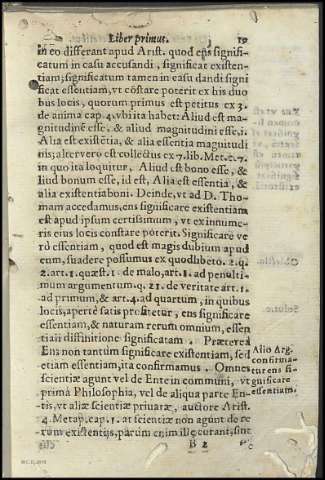 Liber primus. 19
in eo differant apud Arist. quod ens signifi-
catum in casu accusandi, significat existen-
tiam; significatum tamen in casu dandi signi
ficat essentiam, vt cõstare poterit ex his duo
bus locis, quorum primus est petitus ex 3.
de anima cap. 4. vbi ita habet: Aliud est ma-
gnitudine esse, & aliud magnitudini esse, i.
Alia est existẽtia, & alia essentia magnitudi
nis; alter vero est collectus ex 7. lib. Met. c. 7.
in quo ita loquitur, Aliud est bono esse, &
aliud bonum esse, id est, Alia est essentia, &
alia existentia boni. Deinde, vt ad D. Tho-
mam accedamus, ens significare existentiam
est apud ipsum certissimum, vt ex innume-
ris eius locis constare poterit. Significare ve
rò essentiam, quod est magis dubium apud
eum, suadere possumus ex quodlibeto. 2. q.
2. art. 1. quæst. 1. de malo, art. 1. ad penulti-
mum argumentum. q. 21. de veritate art. 1.
ad primum, & art. 4. ad quartum, in quibus
locis, apertè satis profitetur, ens significare
essentiam, & naturam rerum omnium, essen
tiali diffinitione significatam. Præterea
Ens non tantum significare existentiam, sed
etiam essentiam, ita confirmamus. Omnes
scientiæ agunt vel de Ente in communi, vt
prima Philosophia, vel de aliqua parte En-
tis, vt aliæ scientiæ priuatæ, auctore Arist.
4. Metap. cap. 1. at scientiæ non agunt de re
rum existentijs, parum enim ille curant, sint
Alio Arg.
confirma-
tur ens si-
gnificare
essentiam.
B 2